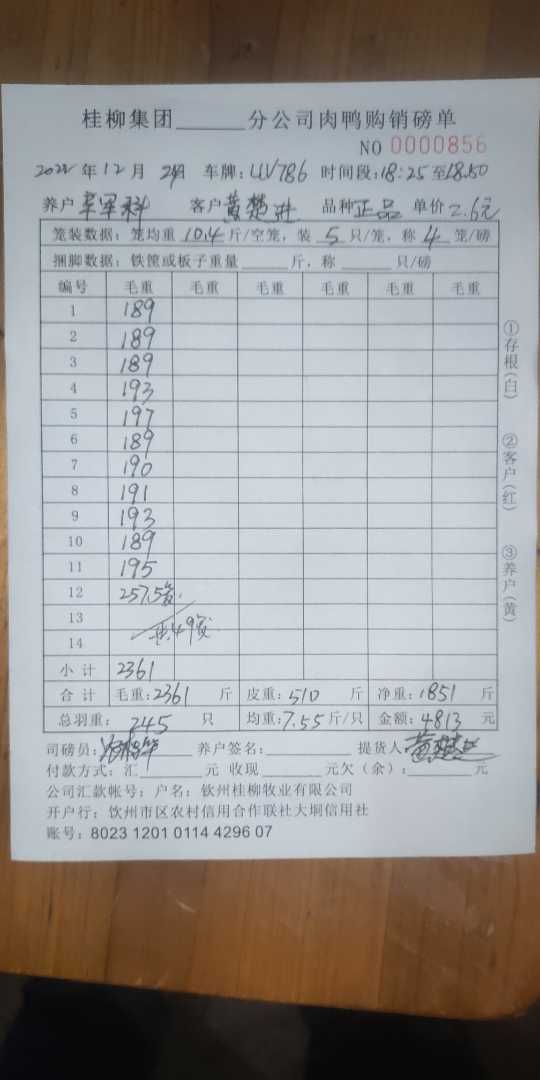 桂柳集团______分公司肉鸭购销磅单
NO 0000856
年12月 日 车牌:UV786 时间段:18:25至18:50
养户 客户黄楚进 品种正品 单价2.6元
笼装数据:笼均重 10.4 斤/空笼,装 5 只/笼,称 4 笼/磅
捆脚数据:铁篦或板子重量______斤,称______只/磅
编号 毛重 毛重 毛重 毛重 毛重 毛重
1 189
2 189
3 189
4 193
5 197
6 189
7 190
8 191
9 193
10 189
11 195
12 257.5笼
13 共49笼
14
小计 2361
合计 毛重:2361 斤 皮重:510 斤 净重:1851 斤
总羽重: 245 只 均重:7.55斤/只 金额:4813 元
司磅员: 养户签名:__________ 提货人:黄楚进
付款方式:汇______元 收现______元欠(余):______元
公司汇款帐号:户名:钦州桂柳牧业有限公司
开户行:钦州市区农村信用合作联社大垌信用社
账号:8023 1201 0114 4296 07
①存根(白)
②客户(红)
③养户(黄)